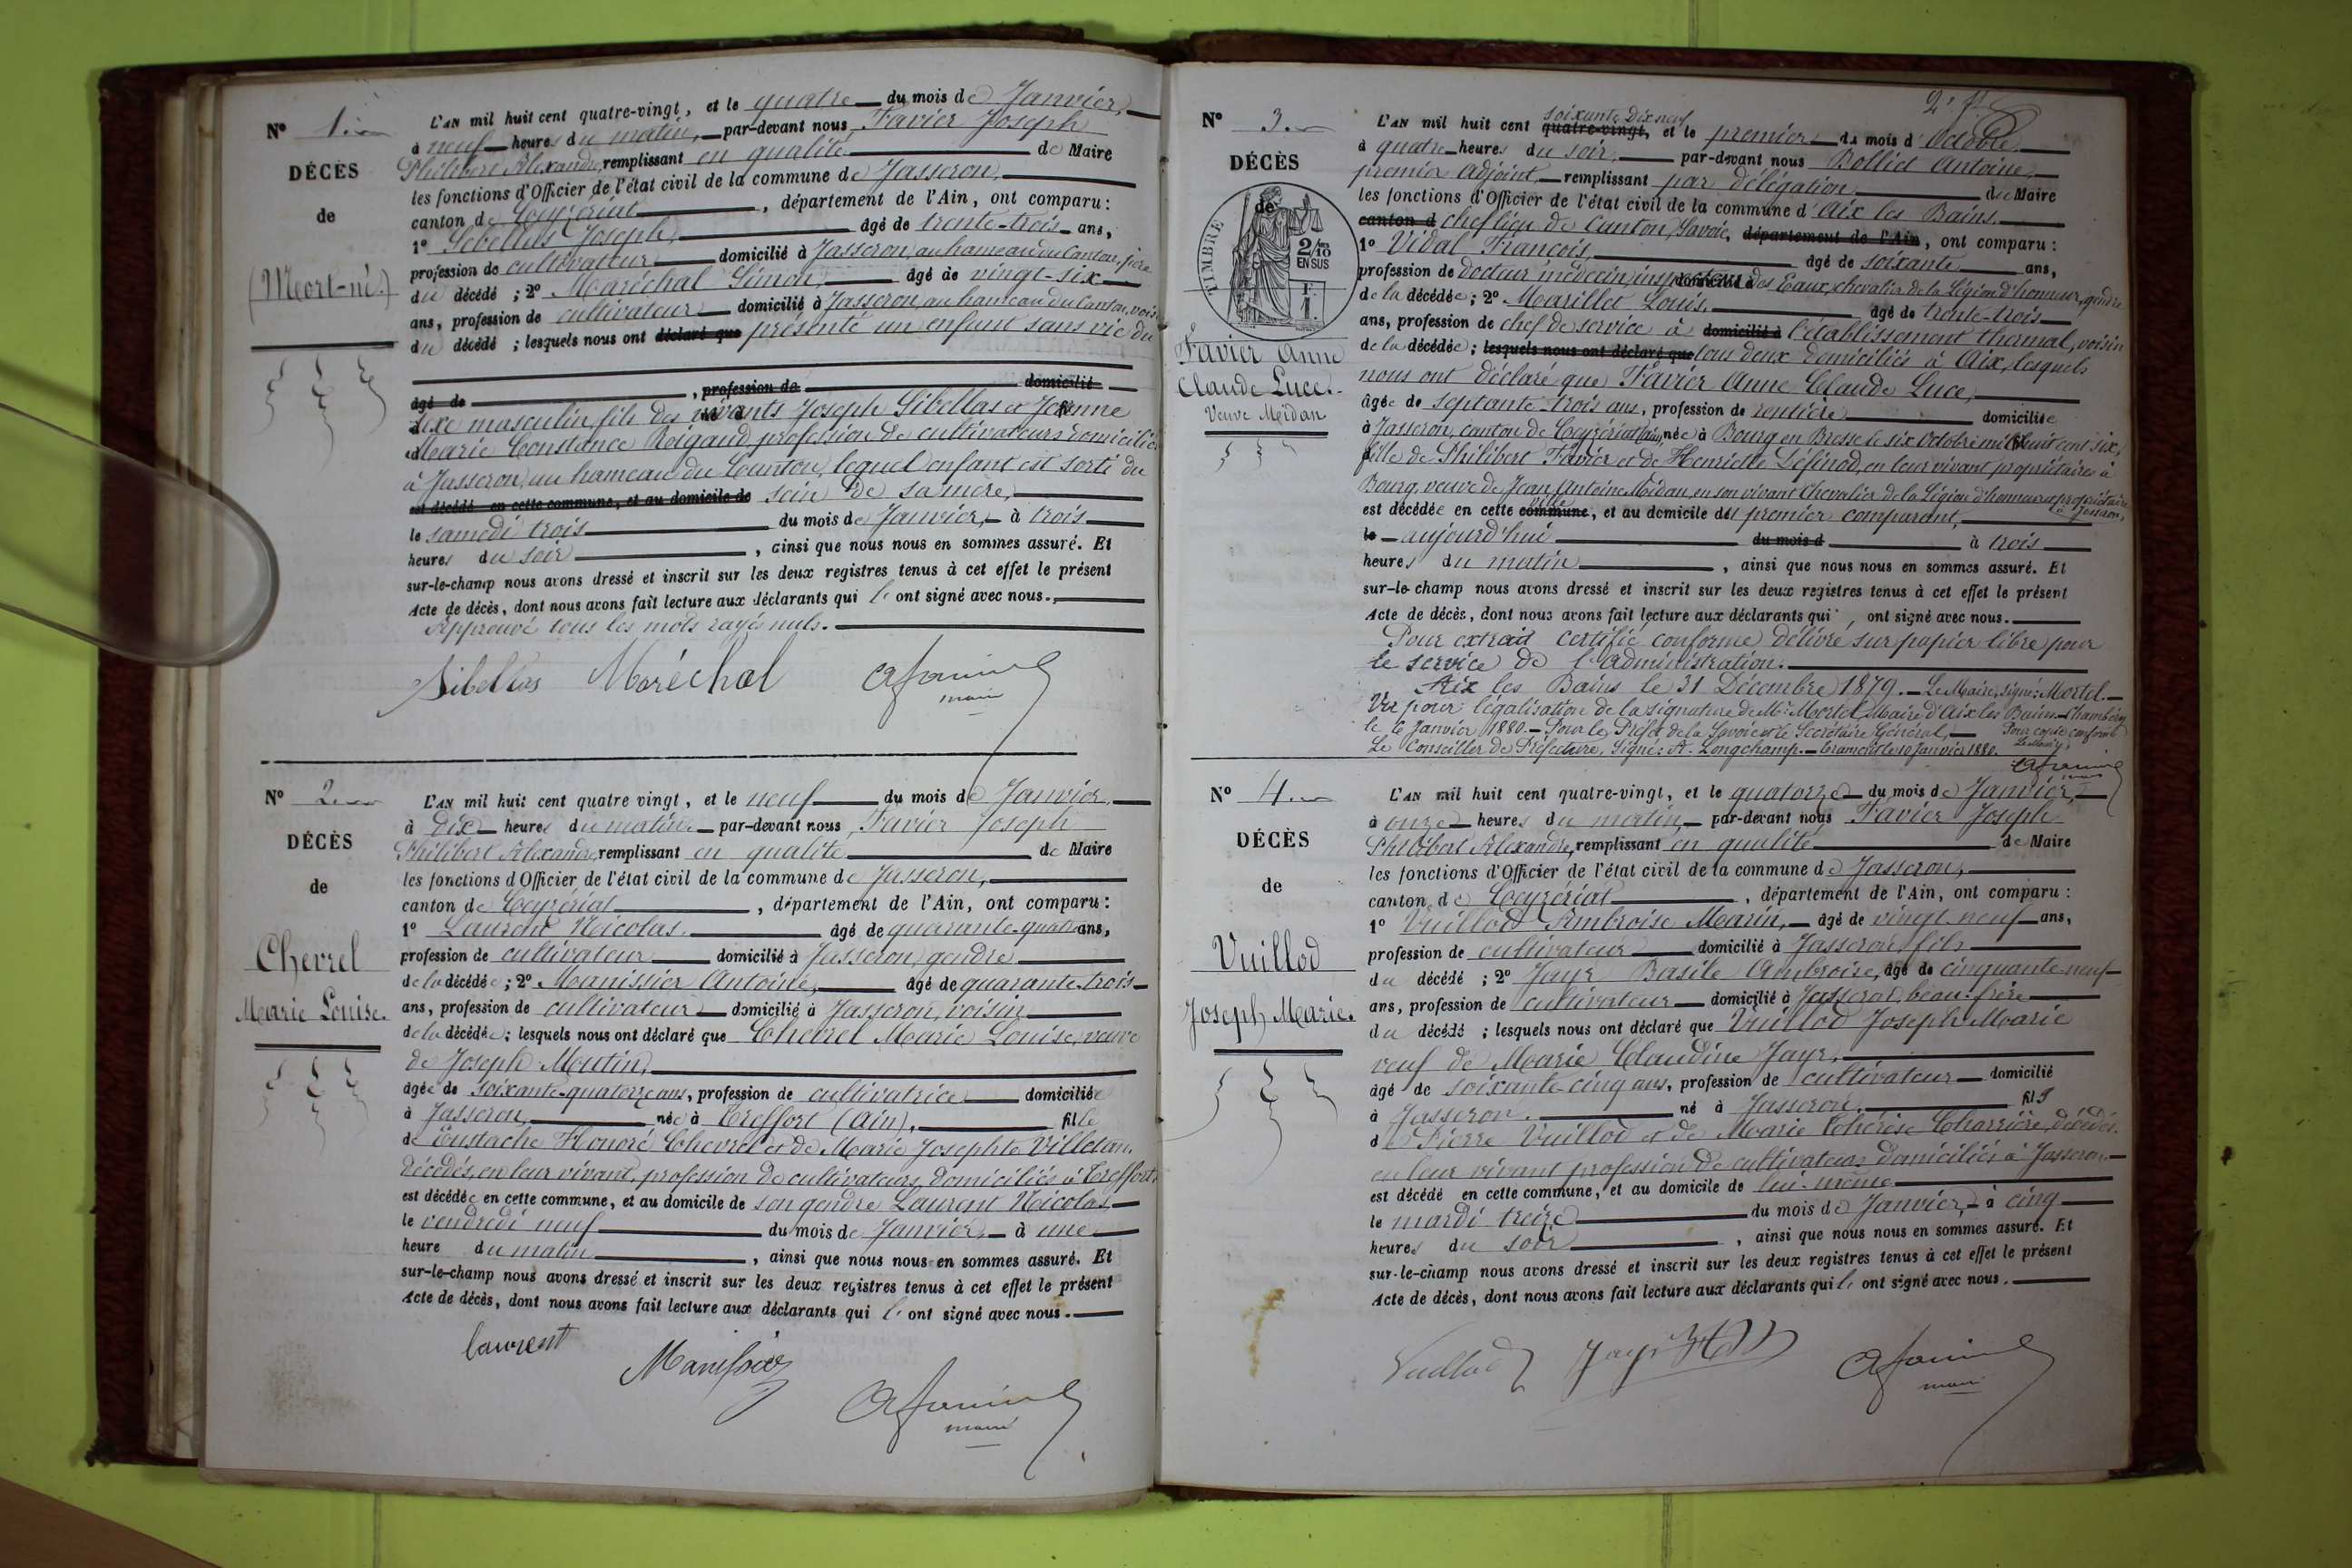 N° 1.
DÉCÈS
de
(Mort-né.)
L'AN mil huit cent quatre-vingt, et le quatre du mois de Janvier,
à neuf heures du matin, par-devant nous Favier Joseph
Philibert Alexandre, remplissant en qualité de Maire
les fonctions d'Officier de l'état civil de la commune de Jasseron,
canton de Ceyzériat, département de l'Ain, ont comparu:
1° Sibellas Joseph, âgé de trente-trois ans,
profession de cultivateur domicilié à Jasseron, au hameau du Canton, père
du décédé ; 2° Maréchal Simon, âgé de vingt-six
ans, profession de cultivateur domicilié à Jasseron, au hameau du Canton, voisin
du décédé ; lesquels nous ont déclaré que présenté un enfant sans vie du
âgé de , profession de domicilié
sexe masculin fils des vivants Joseph Sibellas et Jeanne
Marie Constance Roigaud profession de cultivateurs domiciliés
à Jasseron, au hameau du Counton, lequel enfant est sorti du
est décédé en cette commune, et au domicile de sein de sa mère,
le samedi trois du mois de Janvier, à trois
heures du soir , ainsi que nous nous en sommes assuré. Et
sur-le-champ nous avons dressé et inscrit sur les deux registres tenus à cet effet le présent
Acte de décès, dont nous avons fait lecture aux déclarants qui l' ont signé avec nous.
Approuvé tous les mots rayés nuls.
Sibellas Maréchal
maire
N° 2
DÉCÈS
de
Chevrel
Marie Louise.
L'AN mil huit cent quatre vingt, et le neuf du mois de Janvier,
à dix heures du matin par-devant nous Favier Joseph
Philibert Alexandre, remplissant en qualité de Maire
les fonctions d'Officier de l'état civil de la commune de Jasseron,
canton de Ceyzériat , département de l'Ain, ont comparu:
1° Laurent Nicolas. âgé de quarante-quatre ans,
profession de cultivateur domicilié à Jasseron, gendre
de la décédée ; 2° Manissier Antoine, âgé de quarante-trois
ans, profession de cultivateur domicilié à Jasseron, voisin
de la décédée ; lesquels nous ont déclaré que Chevrel Marie Louise, veuve
de Joseph Moutin,
âgée de soixante-quatorze ans, profession de cultivatrice domiciliée
à Jasseron, née à Treffort (Ain), fille
de Eustache Honoré Chevrel et de Marie Josephte Villetan.
décédés, en leur vivant, profession de cultivateurs, domiciliés à Treffort,
est décédée en cette commune, et au domicile de son gendre Laurent Nicolas,
le vendredi neuf du mois de Janvier, à une
heure du matin , ainsi que nous nous en sommes assuré. Et
sur-le-champ nous avons dressé et inscrit sur les deux registres tenus à cet effet le présent
Acte de décès, dont nous avons fait lecture aux déclarants qui l' ont signé avec nous.
laurent
Manissier
maire
2e
N° 3.
DÉCÈS
de
TIMBRE
2/10
EN SUS
F.
1.
Favier Anne
Claude Luce.
Veuve Midan
soixante dix neuf
L'AN mil huit cent quatre-vingt, et le premier du mois d'Octobre
à quatre heures du soir, par-devant nous Bolliet Antoine,
premier adjoint, remplissant par délégation du Maire
les fonctions d'Officier de l'état civil de la commune d'Aix les Bains.
canton d chef lieu de canton, Savoie, département de l'Ain, ont comparu :
1° Vidal François, âgé de soixante ans,
profession de docteur médecin, inspecteur des Eaux, chevalier de la Légion d'honneur, gendre
de la décédée ; 2° Marillet Louis, âgé de trente-trois
ans, profession de chef de service à domicilié à l'établissement thermal, voisin
de la décédée ; lesquels nous ont déclaré que tous deux domiciliés à Aix, lesquels
nous ont déclaré que Favier Anne Claude Luce,
âgée de septante-trois ans, profession de rentière domiciliée
à Jasseron, canton de Ceyzériat (Ain), née à Bourg en Bresse le six Octobre mil huit cent six,
fille de Philibert Favier et de Henriette Définod, en leur vivant propriétaires à
Bourg, veuve de Jean Antoine Midan, en son vivant Chevalier de la Légion d'honneur et propriétaire
à Jasseron,
ville
est décédée en cette commune, et au domicile du premier comparant,
le aujourd'hui du mois d à trois
heures du matin , ainsi que nous nous en sommes assuré. Et
sur-le-champ nous avons dressé et inscrit sur les deux registres tenus à cet effet le présent
Acte de décès, dont nous avons fait lecture aux déclarants qui , ont signé avec nous.
Pour extrait certifié conforme délivré sur papier libre pour
le service de l'administration.
Aix les Bains le 31 Décembre 1879. Le Maire, signé: Mortel.
Vu pour légalisation de la signature de Mr Mortel, Maire d'Aix les Bains. Chambéry
le 6 Janvier 1880. Pour le Préfet de la Savoie et le Secrétaire Général,
Le Conseiller de Préfecture, Signé: A. Longchamp.
Pour copie conforme
N° 4.
DÉCÈS
de
Vuillod
Joseph Marie.
L'AN mil huit cent quatre-vingt, et le quatorze du mois de Janvier,
à onze heures du matin, par-devant nous Favier Joseph
Philibert Alexandre, remplissant en qualité de Maire
les fonctions d'Officier de l'état civil de la commune de Jasseron,
canton de Ceyzériat , département de l'Ain, ont comparu :
1° Vuillod Ambroise Marin, âgé de vingt neuf ans,
profession de cultivateur domicilié à Jasseron, fils
du décédé ; 2° Jayr Basile Ambroise, âgé de cinquante-neuf
ans, profession de cultivateur domicilié à Jasseron, beau-frère
du décédé ; lesquels nous ont déclaré que Vuillod Joseph Marie
veuf de Marie Claudine Jayr,
âgé de soixante-cinq ans, profession de cultivateur domicilié
à Jasseron. né à Jasseron, fils
de Pierre Vuillod et de Marie Thérèse Charrière, décédés.
en leur vivant profession de cultivateurs domiciliés à Jasseron
est décédé en cette commune, et au domicile de lui-même
le mardi treize du mois de Janvier, à cinq
heures du soir , ainsi que nous nous en sommes assuré. Et
sur-le-champ nous avons dressé et inscrit sur les deux registres tenus à cet effet le présent
Acte de décès, dont nous avons fait lecture aux déclarants qui l' ont signé avec nous.
Vuillod Jayr
maire